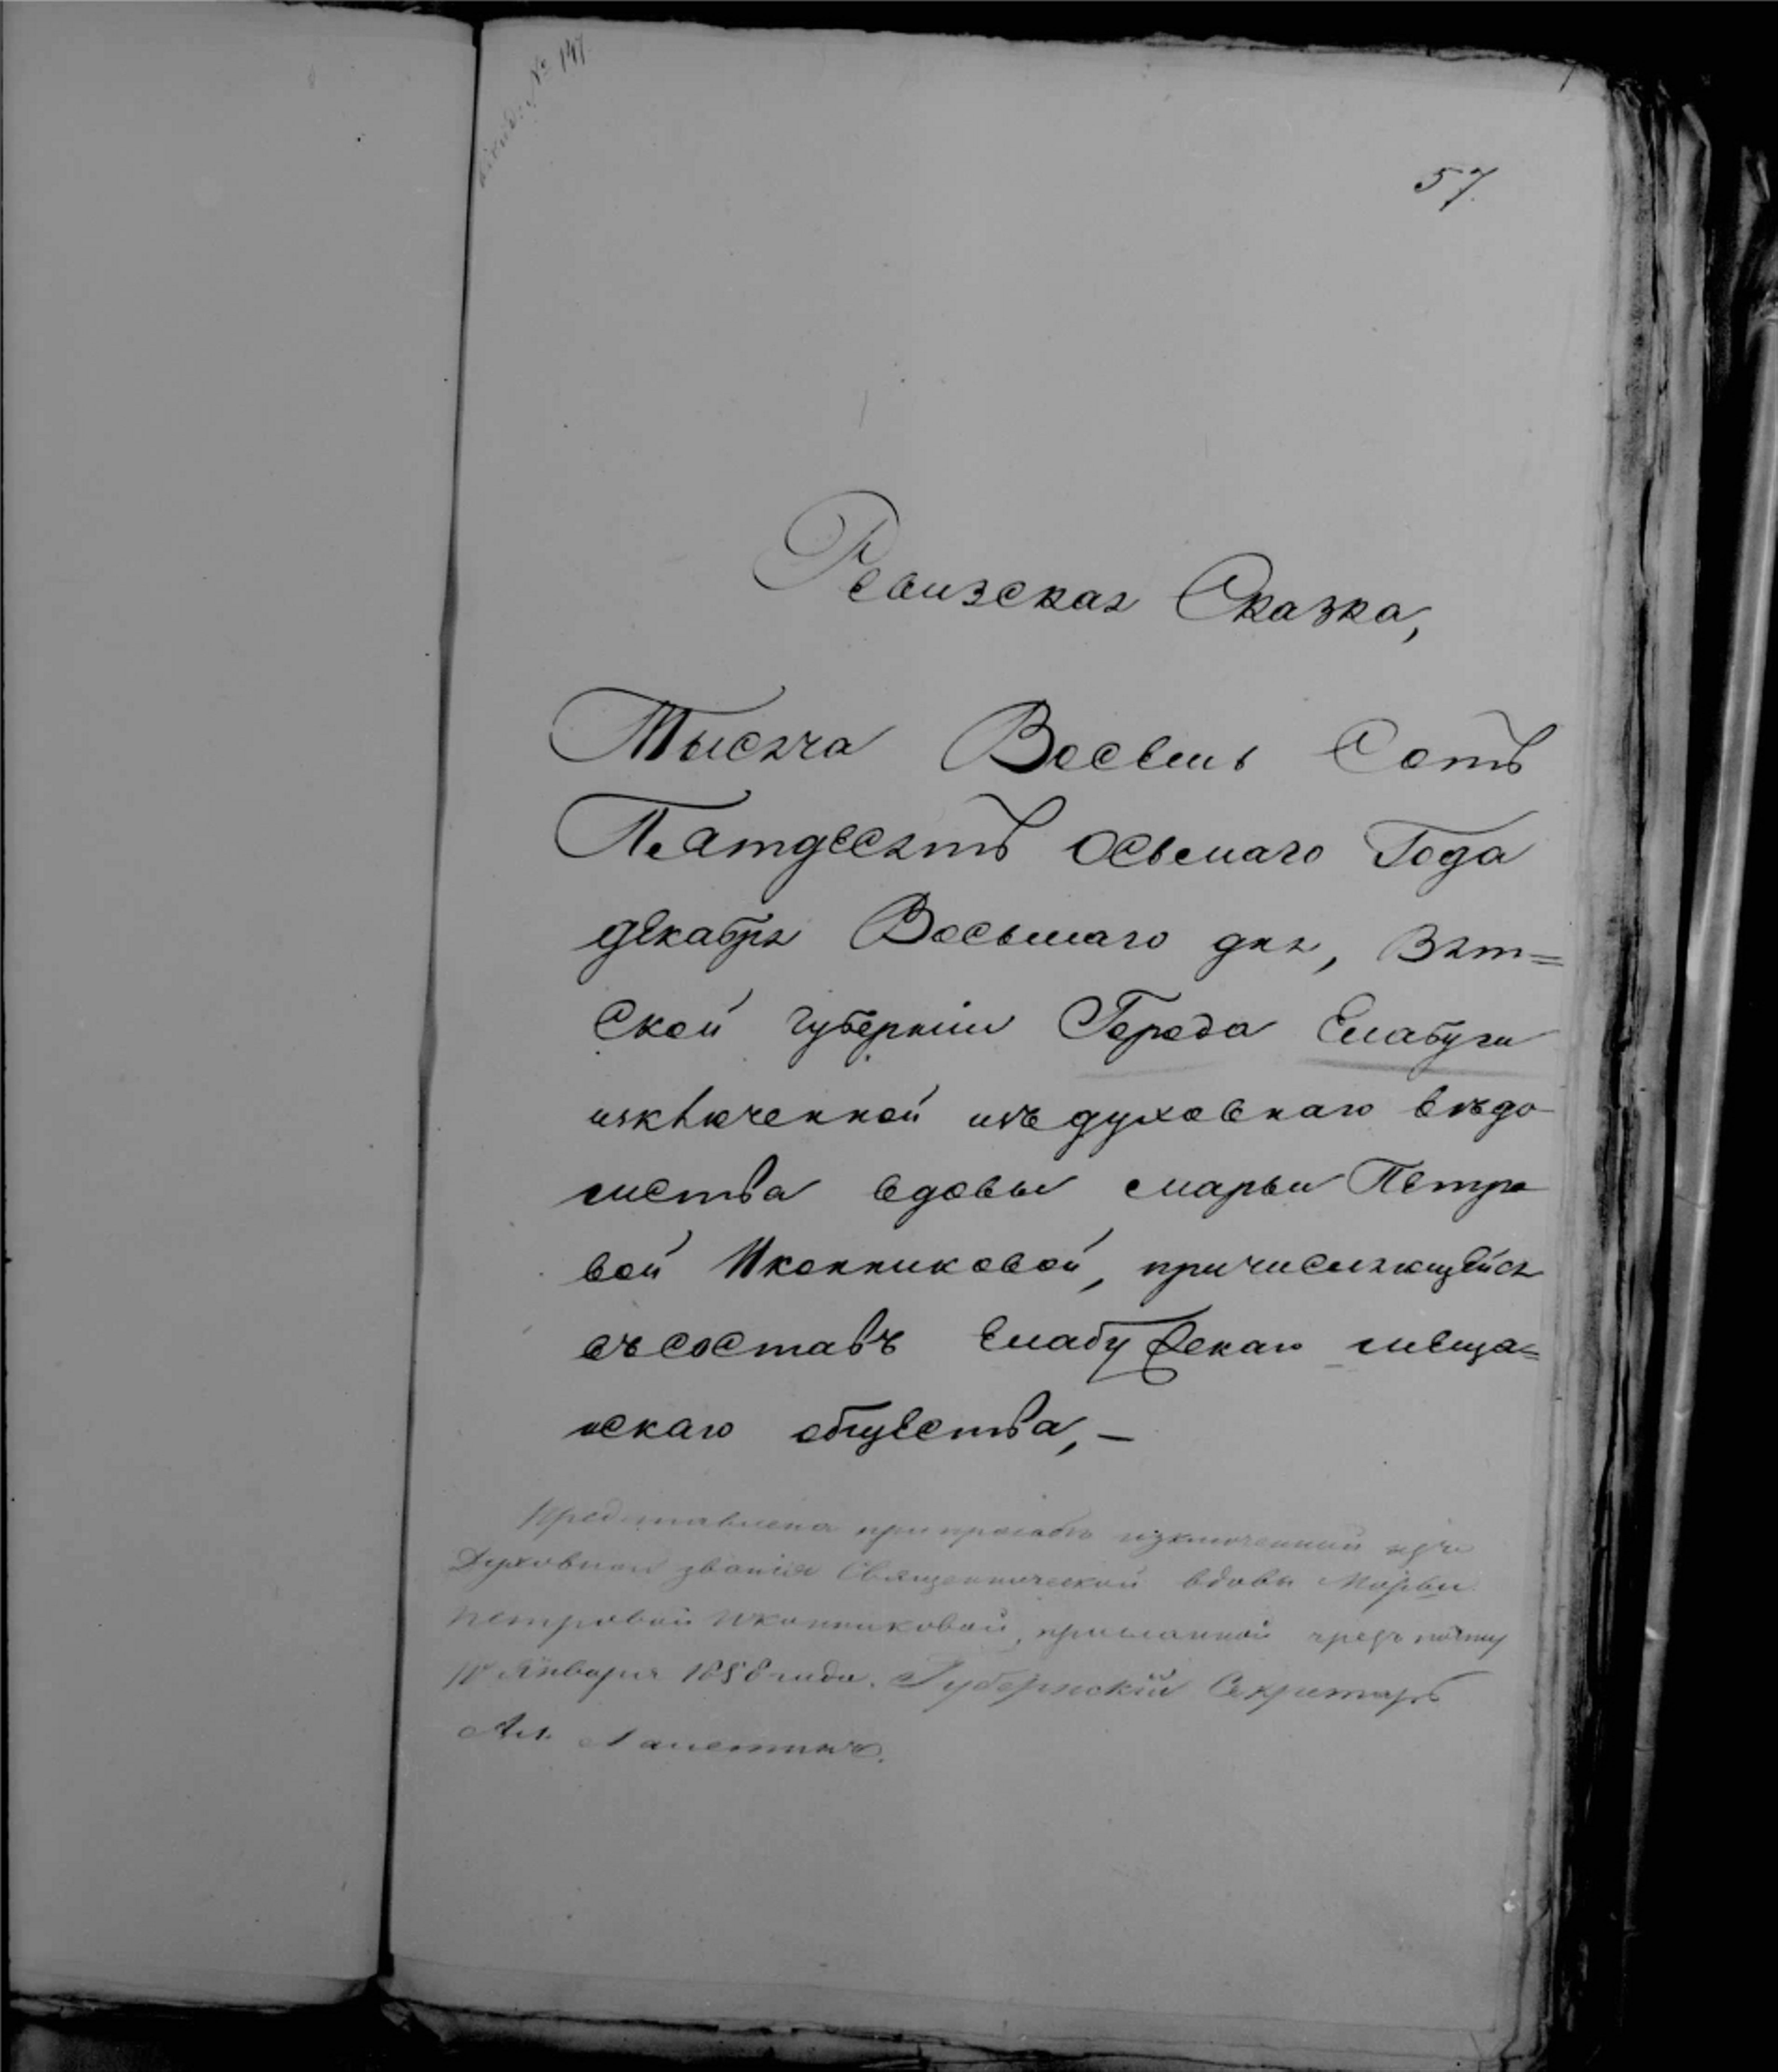 № 147.
57.
Ревизская Сказка,
Тысяча Восемь Сотъ
Пятдесятъ осьмаго Года
декабря Восьмаго дня, Вят=
ской губерніи Города Елабуги
изключенной изъ духовнаго вѣдо
мства вдовы Марьи Петро
вой Иконниковой, причисляющейся
въ составъ Елабужскаго меща=
нскаго общества, —
Представлена при прозьбѣ изключенной изъ
Духовнаго званія Священнической вдовы Марьи
Петровой Иконниковой, присланной чрезъ почту
Января 1858 года. Губернскій Секретарь
Ал.